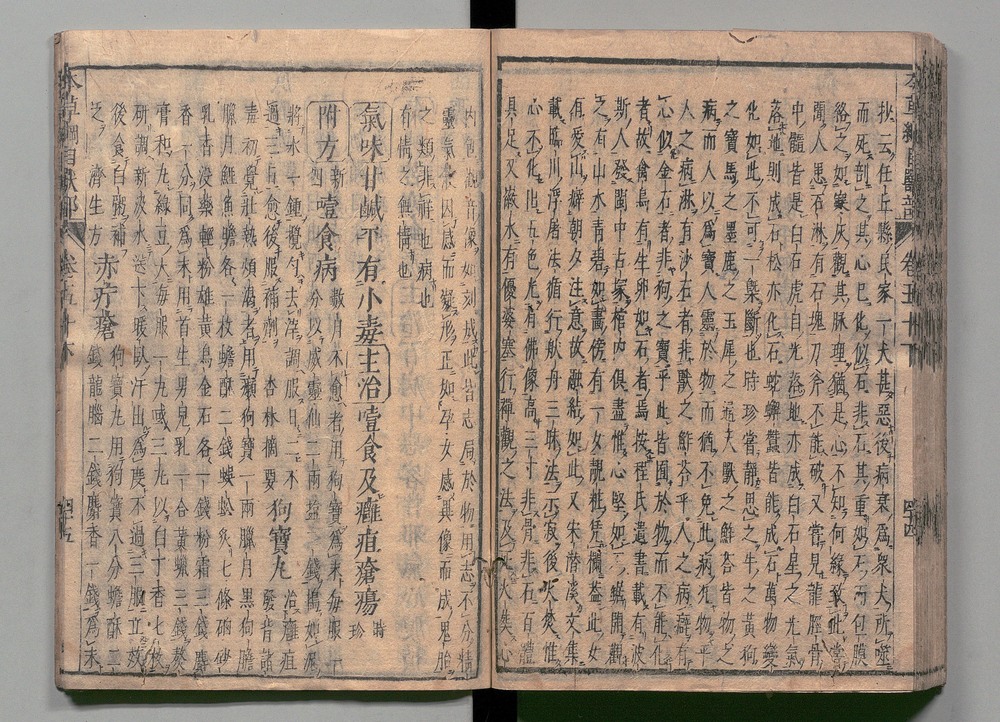 本草綱目獸部 卷五十下 四十四
抄云任丘縣民家一犬甚惡後病衰爲衆犬所噬
而死剖之其心已化似石非石其重如石而包膜
絡之如寒灰觀其脉理猶是心不知何緣致此嘗
聞人患石淋有石塊刀斧不能破又嘗見龍脛骨
中髓皆是白石虎目光落地亦成白石星之光氣
落地則成石松亦化石蛇蟹蠶皆能成石萬物變
化如此不可一槩斷也時珍嘗靜思之牛之黄狗
之寶馬之墨鹿之玉犀之通天獸之鮓荅皆物之
病而人以爲寶人靈於物而猶不免此病况物乎
人之病淋有沙石者非獸之鮓荅乎人之病癖有
心似金石者非狗之寶乎此皆囿於物而不能化
者故禽鳥有生卵如石者焉按程氏遺書載有波
斯人發閩中古塚棺内俱盡惟心堅如石鋸開觀
之有山水青碧如畫傍有一女靚粧凭欄葢此女
有愛山癖朝夕注意故融結如此又宋潛溪文集
載臨川浮屠法循行般舟三昧法示寂後火焚惟
心不化出五色光有佛像高三寸非骨非石百體
具足又漵水有優婆塞行禪觀之法及死火焚心
内包觀音像如刻成此皆志局於物用志不分精
靈氣液因感而凝形正如孕女感異像而成鬼胎
之類非祥也病也
有情之無情也
氣味甘鹹平有小毒主治噎食及癰疽瘡瘍時珍
附方新四噎食病數月不愈者用狗寶爲末每服
一分以威靈仙二兩塩二錢搗如泥
將水一鍾攪勻去滓調服日二不
過三日愈後服補劑 杏林摘要 狗寶丸治癰疽發背諸
毒初覺壯熱煩渴者用癩狗寶一兩臘月黑狗膽
臘月鯉魚膽各一枚蟾酥二錢蜈蚣炙七條硇砂
乳香没藥輕粉雄黄烏金石各一錢粉霜三錢麝
香一分同爲末用首生男兒乳一合黄蠟三錢熬
膏和丸綠豆大每服一丸或三丸以白丁香七枚
研調新汲水送下暖臥汗出爲度不過三服立效
後食白粥補之 濟生方 赤疔瘡狗寶丸用狗寶八分蟾酥二
錢龍腦二錢麝香一錢爲末
本草綱目獸部 卷五十下 四十五